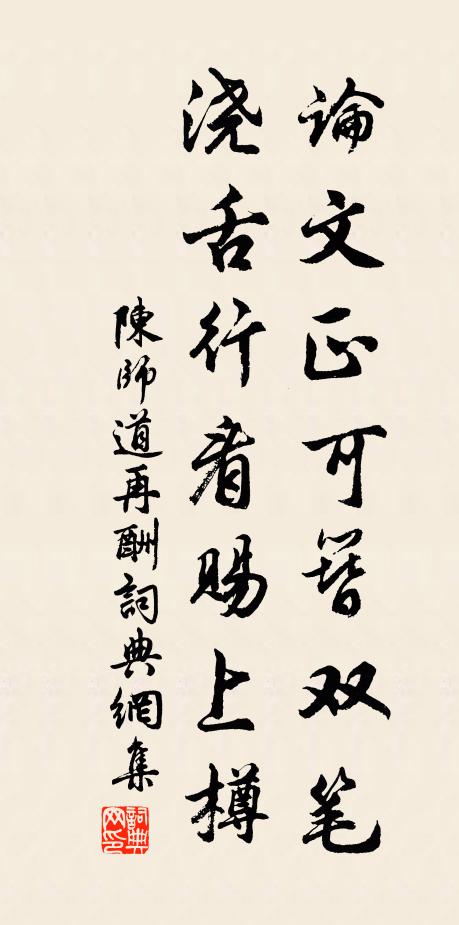 論文正可簪双笔
浇舌行看赐上樽
陳師道再酬詞典網集
詞典网印